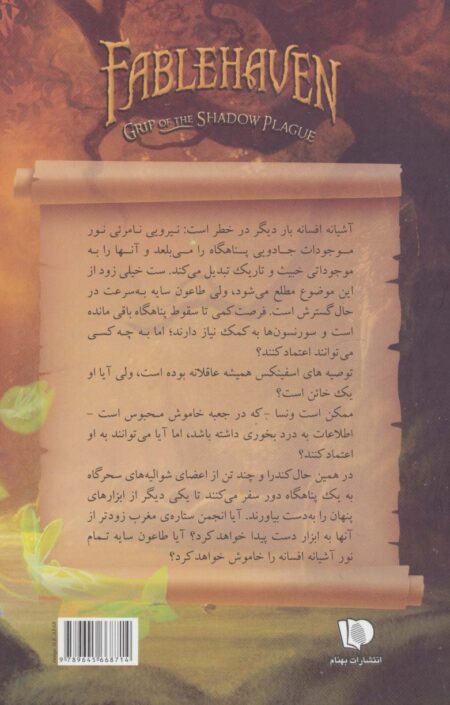 FABLEHAVEN
GRIP OF THE SHADOW PLAGUE
آشیانه افسانه بار دیگر در خطر است: نیرویی نامرئی نور
موجودات جادویی پناهگاه را می‌بلعد و آنها را به
موجوداتی خبیث و تاریک تبدیل می‌کند. ست خیلی زود از
این موضوع مطلع می‌شود، ولی طاعون سایه به‌سرعت در
حال گسترش است. فرصت کمی تا سقوط پناهگاه باقی مانده
است و سورنسون‌ها به کمک نیاز دارند؛ اما به چه کسی
می‌توانند اعتماد کنند؟
توصیه های اسفینکس همیشه عاقلانه بوده است، ولی آیا او
یک خائن است؟
ممکن است ونسا – که در جعبه خاموش محبوس است –
اطلاعات به درد بخوری داشته باشد، اما آیا می‌توانند به او
اعتماد کنند؟
در همین حال کندرا و چند تن از اعضای شوالیه‌های سحرگاه
به یک پناهگاه دور سفر می‌کنند تا یکی دیگر از ابزارهای
پنهان را به‌دست بیاورند. آیا انجمن ستاره‌ی مغرب زودتر از
آنها به ابزار دست پیدا خواهد کرد؟ آیا طاعون سایه تمام
نور آشیانه افسانه را خاموش خواهد کرد؟
9 789645 668714
انتشارات بهنام